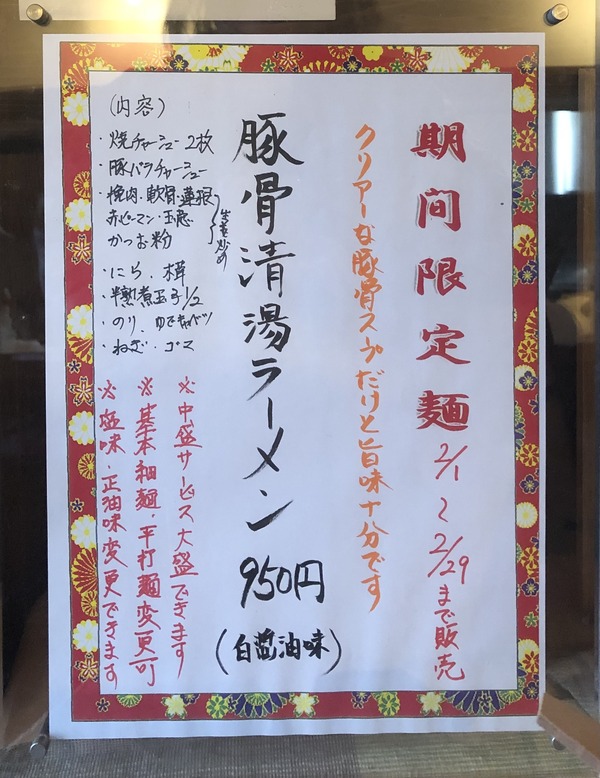 期間限定麺 2/1~2/29まで販売
クリアーな豚骨スープだけど旨味十分です
豚骨清湯ラーメン 950円
(白醤油味)
(内容)
・焼チャーシュー2枚
・豚バラチャーシュー
・挽肉・軟骨・蓮根
赤ピーマン・玉葱
かつお粉
生姜炒め
・にら、木茸
・半熟煮玉子1/2
・のり、ゆでキャベツ
・ねぎ・ゴマ
※中盛サービス大盛できます
※基本細麺・平打麺変更可
※塩味・正油味変更できます